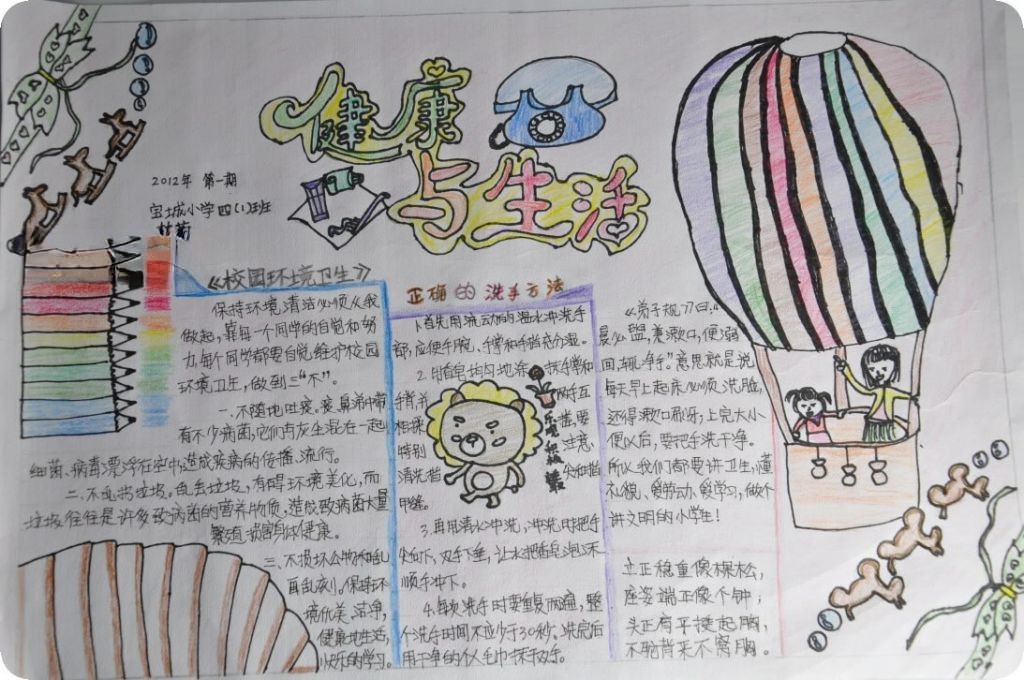 健康
与生活
2012年 第一期
宝城小学四(1)班
《校园环境卫生》
保持环境清洁必须从我
做起,靠每一个同学的自觉和努
力,每个同学都要自觉维护校园
环境卫生,做到三“不”。
一、不随地吐痰。痰、鼻涕中带
有不少病菌,它们与灰尘混在一起
细菌、病毒漂浮在空中,造成疾病的传播、流行。
二、不乱扔垃圾。乱丢垃圾,有碍环境美化,而
垃圾往往是许多致病菌的营养物质,造成致病菌大量
繁殖,损害身体健康。
三、不损坏公物和乱
写乱刻。保持环
境优美、洁净,
健康地生活,
快乐的学习。
正确的洗手方法
1.首先用流动的温水冲洗手
部,应使手腕、手掌和手指充分湿。
2.用肥皂均匀地涂抹手掌和
手背,并
相搓
特别
清洗指
甲缝。
两手互
盖,要
注意
尖和指
3.再用清水冲洗,冲洗时把手
尖向下,双手下垂,让水把肥皂泡沫
顺手冲下。
4.每次洗手时要重复两遍,整
个洗手时间不应少于30秒。洗完后
用干净的个人毛巾抹干双手。
《弟子规》曰:“
晨必盥,兼漱口,便溺
回,辄净手。”意思就是说
每天早上起床必须洗脸,
还得漱口刷牙;上完大小
便以后,要把手洗干净。
所以我们都要讲卫生,懂
礼貌、爱劳动、爱学习,做个
讲文明的小学生!
立正稳重像棵松,
座姿端正像个钟;
头正肩平挺起胸,
不驼背来不窝胸。